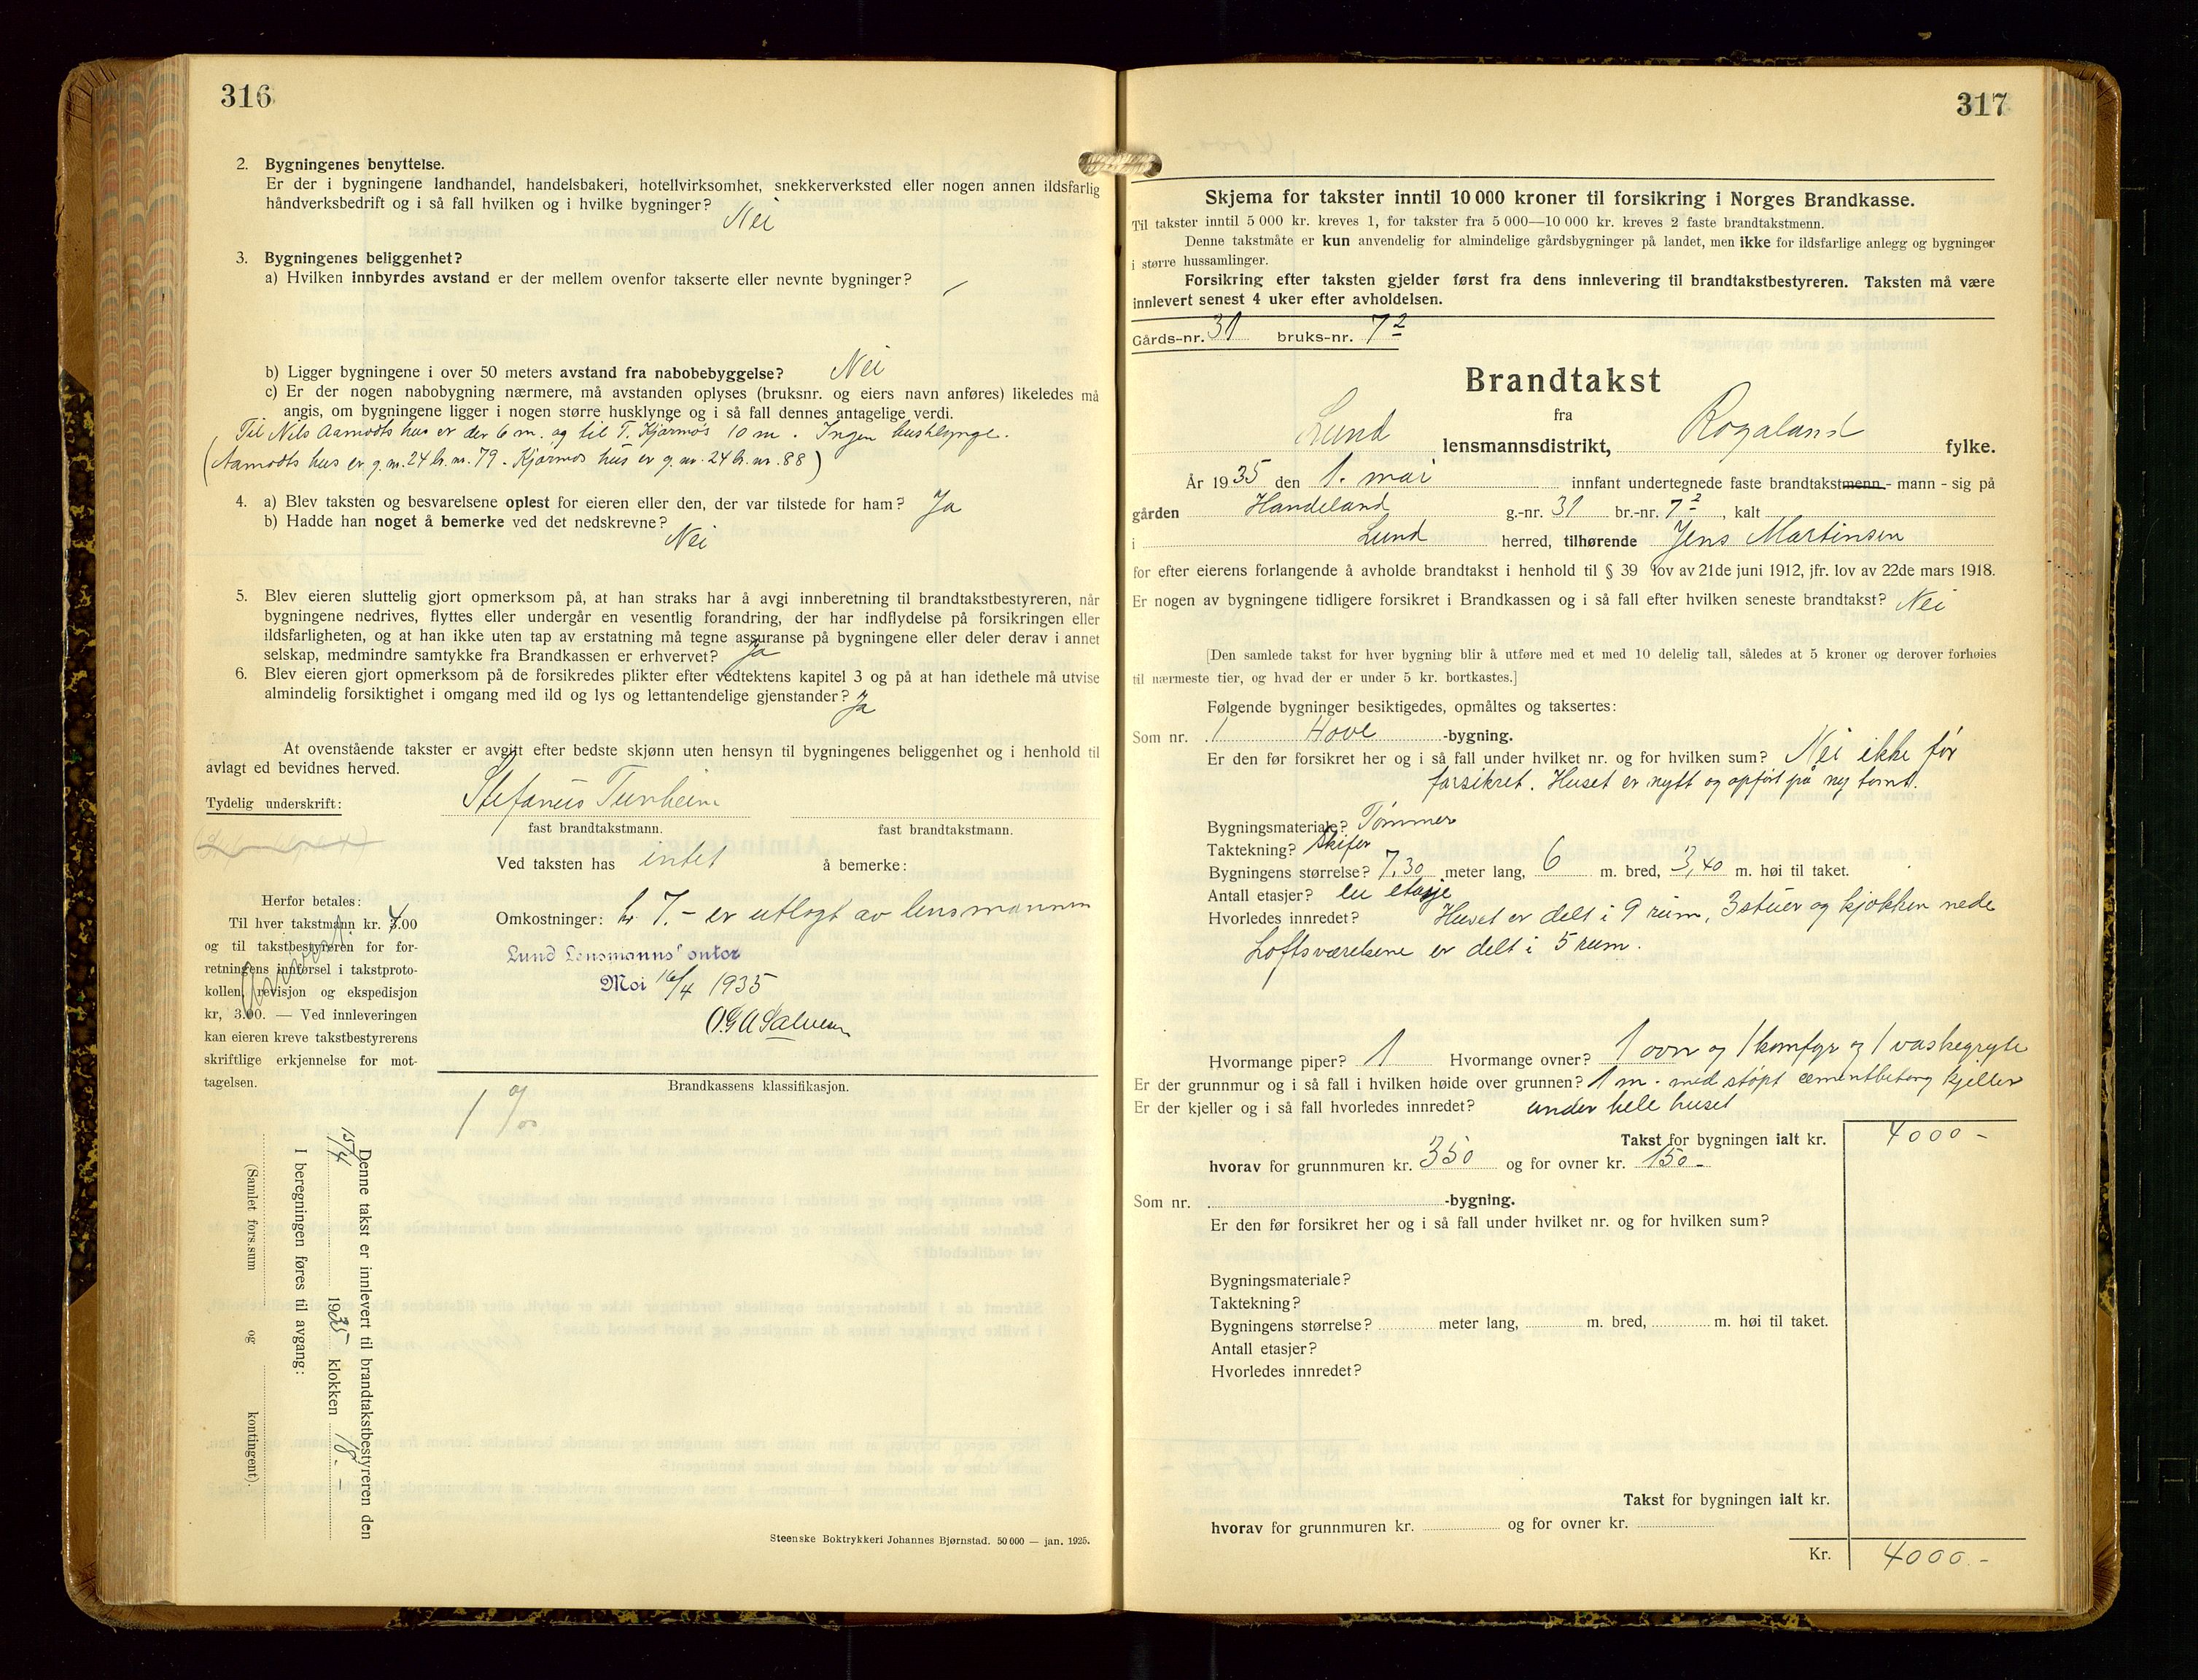 316
2. Bygningenes benyttelse.
Er der i bygningene landhandel, handelsbakeri, hotellvirksomhet, snekkerverksted eller nogen annen ildsfarlig
håndverksbedrift og i så fall hvilken og i hvilke bygninger? Nei
3. Bygningenes beliggenhet?
a) Hvilken innbyrdes avstand er der mellem ovenfor takserte eller nevnte bygninger? -
b) Ligger bygningene i over 50 meters avstand fra nabobebyggelse? Nei
c) Er der nogen nabobygning nærmere, må avstanden oplyses (bruksnr. og eiers navn anføres) likeledes må
angis, om bygningene ligger i nogen større husklynge og i så fall dennes antagelige verdi.
Til Nils Aamodts hus er der 6 m. og til T. Kjørmos 10 m. Ingen husklynge.
(Aamodts hus er g.nr. 24 br.nr. 79 - Kjørmos hus er g.nr. 24 br.nr. 88)
4. a) Blev taksten og besvarelsene oplest for eieren eller den, der var tilstede for ham? Ja
b) Hadde han noget å bemerke ved det nedskrevne? Nei
5. Blev eieren sluttelig gjort opmerksom på, at han straks har å avgi innberetning til brandtakstbestyreren, når
bygningene nedrives, flyttes eller undergår en vesentlig forandring, der har indflydelse på forsikringen eller
ildsfarligheten, og at han ikke uten tap av erstatning må tegne assuranse på bygningene eller deler derav i annet
selskap, medmindre samtykke fra Brandkassen er erhvervet? Ja
6. Blev eieren gjort opmerksom på de forsikredes plikter efter vedtektens kapitel 3 og på at han idethele må utvise
almindelig forsiktighet i omgang med ild og lys og lettantendelige gjenstander? Ja
At ovenstående takster er avgitt efter bedste skjønn uten hensyn til bygningenes beliggenhet og i henhold til
avlagt ed bevidnes herved.
Tydelig underskrift: Stefanus Tunheim
fast brandtakstmann. fast brandtakstmann.
Ved taksten has intet å bemerke:
Omkostninger: kr 7.- er utlagt av lensmannen
Lund Lensmanns' ontor
Moi 16/4 1935
O.G.A. Salvesen
Herfor betales:
Til hver takstmann kr. 4.00
og til takstbestyreren for for-
retningens innførsel i takstproto-
kollen, revisjon og ekspedisjon
kr, 3.00. — Ved innleveringen
kan eieren kreve takstbestyrerens
skriftlige erkjennelse for mot-
tagelsen.
Brandkassens klassifikasjon.
1 %00
Denne takst er innlevert til brandtakstbestyreren den
15/4 1935 klokken 18. -
I beregningen føres til avgang:
(Samlet fors.sum og kontingent).
Steenske Boktrykkeri Johannes Bjørnstad. 50 000 — jan. 1925.
317
Skjema for takster inntil 10 000 kroner til forsikring i Norges Brandkasse.
Til takster inntil 5 000 kr. kreves 1, for takster fra 5 000—10 000 kr. kreves 2 faste brandtakstmenn.
Denne takstmåte er kun anvendelig for almindelige gårdsbygninger på landet, men ikke for ildsfarlige anlegg og bygninger
i større hussamlinger.
Forsikring efter taksten gjelder først fra dens innlevering til brandtakstbestyreren. Taksten må være
innlevert senest 4 uker efter avholdelsen.
Gårds-nr. 31 bruks-nr. 7 2
Brandtakst
fra
Lund lensmannsdistrikt, Rogaland fylke.
År 1935 den 1. mai innfant undertegnede faste brandtakstmenn - mann - sig på
gården Handeland g.-nr. 31 br.-nr. 7 2, kalt
i Lund herred, tilhørende Jens Martinsen
for efter eierens forlangende å avholde brandtakst i henhold til § 39 lov av 21de juni 1912, jfr. lov av 22de mars 1918.
Er nogen av bygningene tidligere forsikret i Brandkassen og i så fall efter hvilken seneste brandtakst? Nei
[Den samlede takst for hver bygning blir å utføre med et med 10 delelig tall, således at 5 kroner og derover forhøies
til nærmeste tier, og hvad der er under 5 kr. bortkastes.]
Følgende bygninger besiktigedes, opmåltes og taksertes:
Som nr. 1 Hove -bygning.
Er den før forsikret her og i så fall under hvilket nr. og for hvilken sum? Nei ikke før
forsikret. Huset er nytt og opført på ny tomt.
Bygningsmateriale? Tømmer
Taktekning? Skifer
Bygningens størrelse? 7.30 meter lang, 6 m. bred, 3,40 m. høi til taket.
Antall etasjer? en etasje
Hvorledes innredet? Huset er delt i 9 rum, 3 stuer og kjøkken nede
Loftsværelsene er delt i 5 rum.
Hvormange piper? 1 Hvormange ovner? 1 ovn og 1 komfyr og 1 vaskegryte
Er der grunnmur og i så fall i hvilken høide over grunnen? 1 m. med støpt cementbetong kjeller
Er der kjeller og i så fall hvorledes innredet? under hele huset
Takst for bygningen ialt kr. 4000 -
hvorav for grunnmuren kr. 350 og for ovner kr. 150 -
Som nr. -bygning.
Er den før forsikret her og i så fall under hvilket nr. og for hvilken sum?
Bygningsmateriale?
Taktekning?
Bygningens størrelse? meter lang, m. bred, m. høi til taket.
Antall etasjer?
Hvorledes innredet?
Takst for bygningen ialt kr.
hvorav for grunnmuren kr. og for ovner kr.
Kr. 4000.-